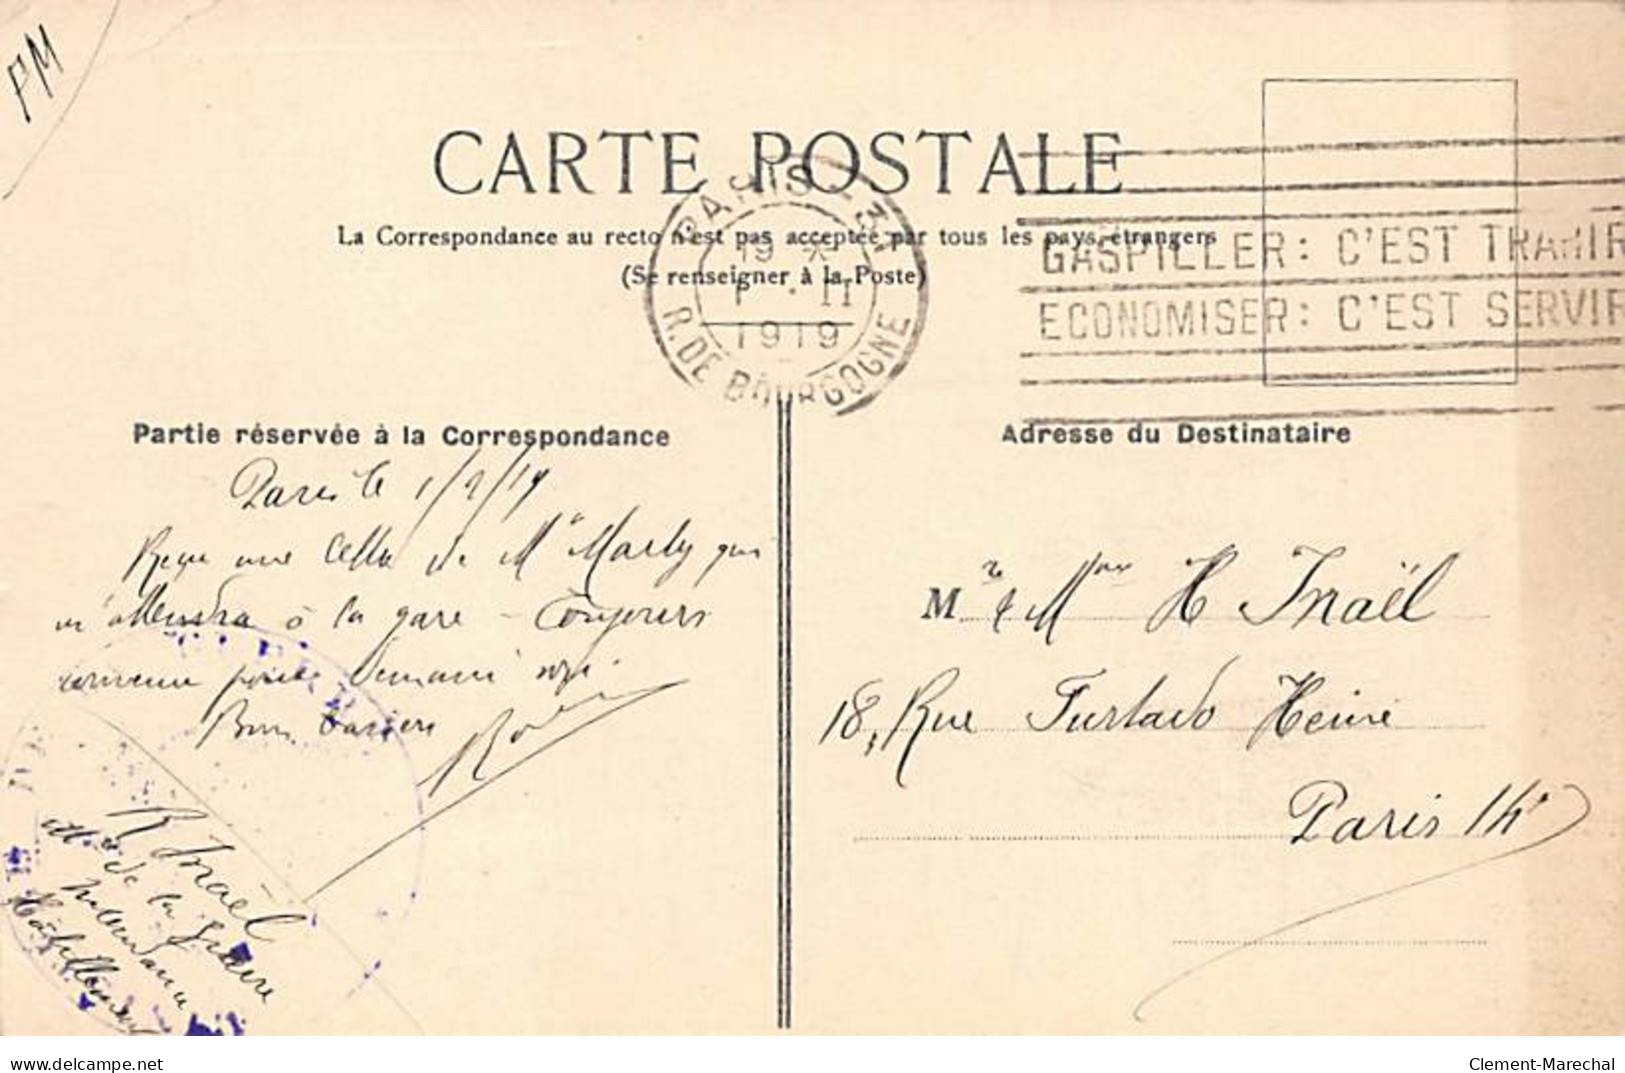 PM
CARTE POSTALE
La Correspondance au recto n'est pas acceptée par tous les pays étrangers
(Se renseigner à la Poste)
PARIS
19 *
1 · II
1919
R. DE BOURGOGNE
GASPILLER: C'EST TRAHIR
ECONOMISER: C'EST SERVIR
Partie réservée à la Correspondance
Paris le 1/2/19
Reçu une de Mr Marly qui
m'attendra à la gare – Toujours
convenu pour demain
Bons baisers
R Israël
de la guerre
Habillement
Adresse du Destinataire
M. r & Mme H Israël
18, Rue Furtado Heine
Paris 14e
delcampe.net
Clement-Marechal